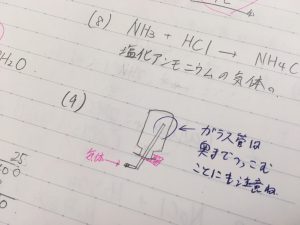 (8) NH3 + HCl → NH4C
塩化アンモニウムの気体。
H2O
(9)
← ガラス管は
奥までつっこむ
ことにも注意ね
気体→
25